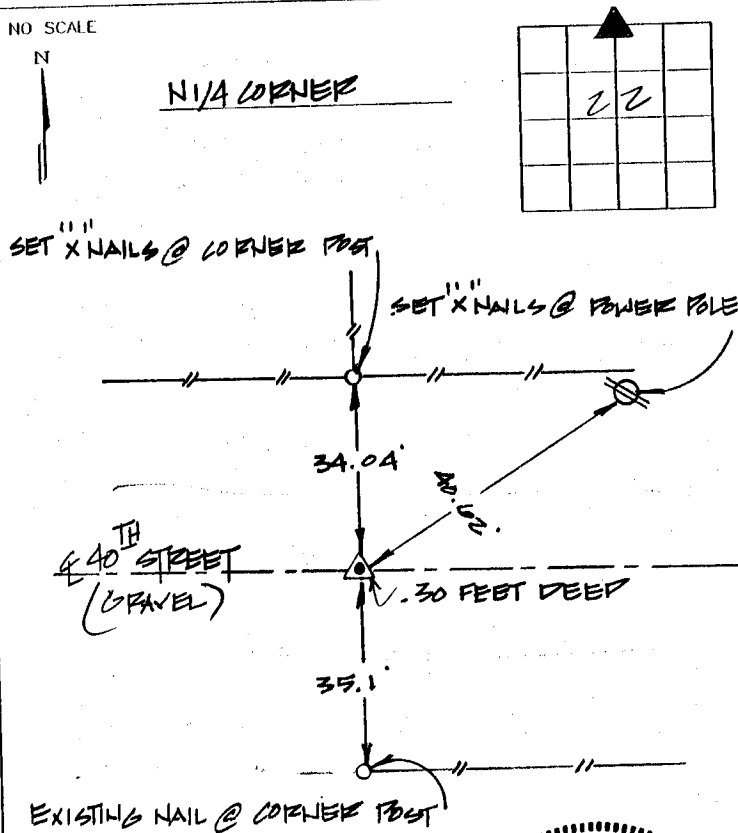 NO SCALE
N
N1/4 CORNER
22
SET "X" NAILS @ CORNER POST
SET "X" NAILS @ POWER POLE
34.04'
40.62'
℄ 40TH STREET
(GRAVEL)
.30 FEET DEEP
35.1'
EXISTING NAIL @ CORNER POST